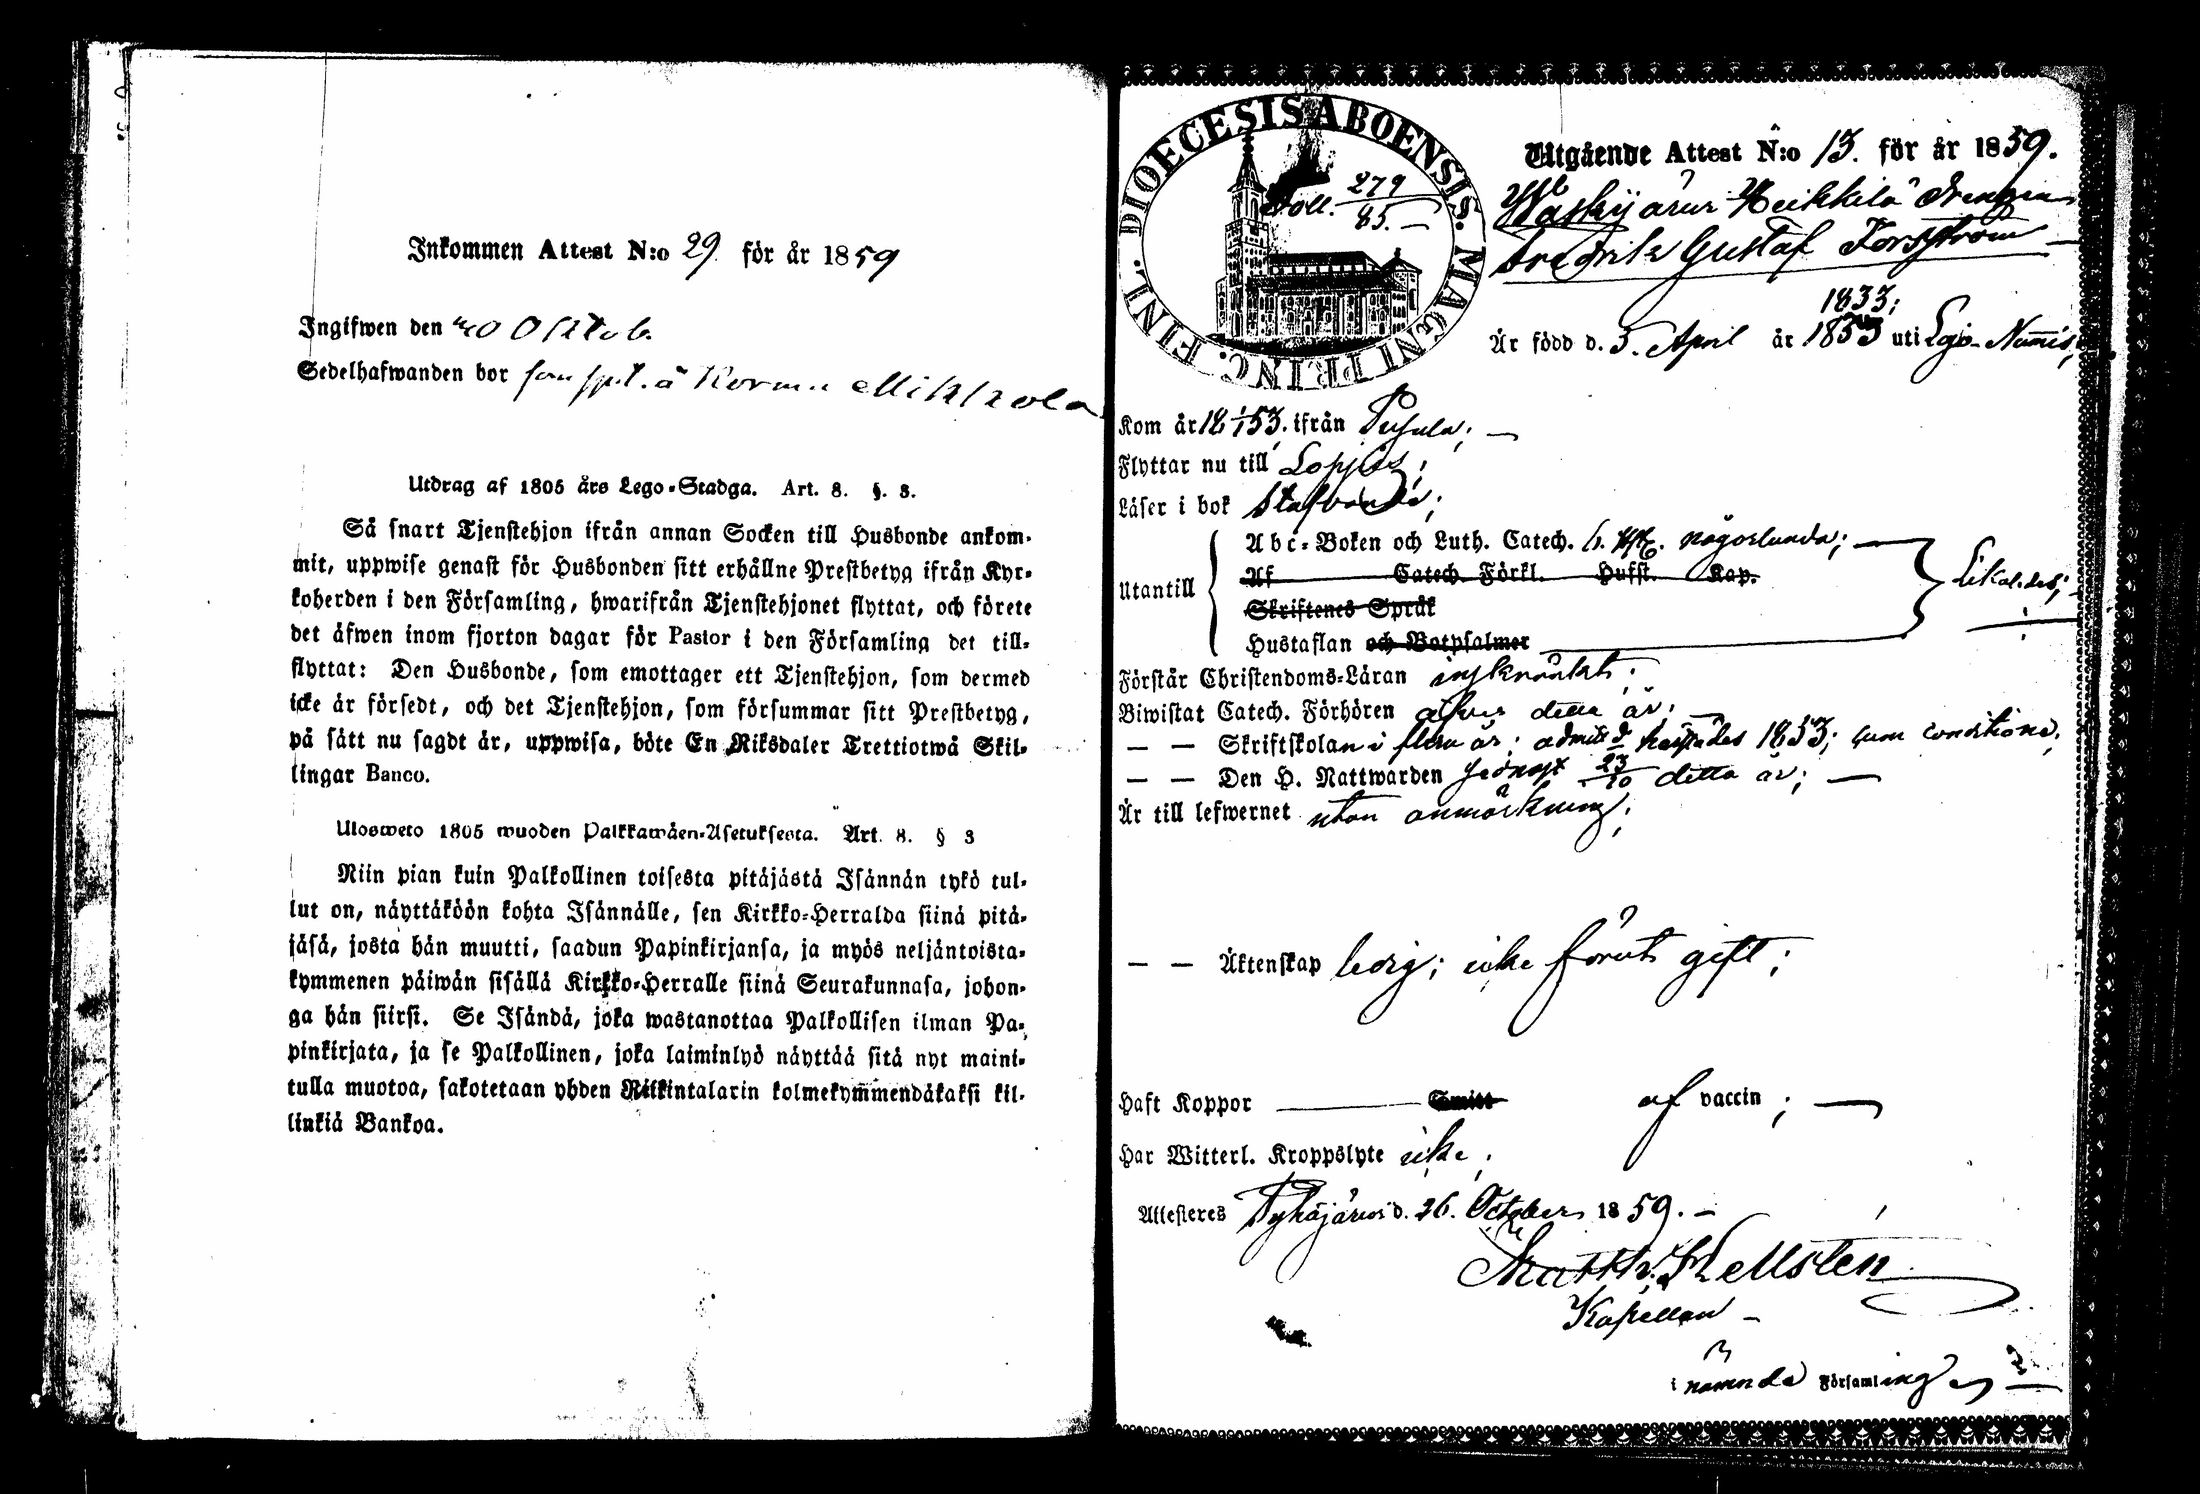 Inkommen Attest N:o 29 för år 1859
Ingifwen den 30 Oktob.
Sedelhafwanden bor å Mikkola
Utdrag af 1805 års Lego-Stadga. Art. 8. §. 3.
Så snart Tjenstehjon ifrån annan Socken till Husbonde ankom-
mit, uppwise genast för Husbonden sitt erhållne Prestbetyg ifrån Kyr-
koherden i den Församling, hwarifrån Tjenstehjonet flyttat, och förete
det äfwen inom fjorton dagar för Pastor i den Församling det till-
flyttat: Den Husbonde, som emottager ett Tjenstehjon, som dermed
icke är försedt, och det Tjenstehjon, som försummar sitt Prestbetyg,
på sätt nu sagdt är, uppwisa, böte En Riksdaler Trettiotwå Skil-
lingar Banco.
Ulosweto 1805 wuoden Palkkawäen-Asetuksesta. Art. 8. § 3
Niin pian kuin Palkollinen toisesta pitäjästä Isännän tykö tul-
lut on, näyttäköön kohta Isännälle, sen Kirkko-Herralda siinä pitä-
jäsä, josta hän muutti, saadun Papinkirjansa, ja myös neljäntoista-
kymmenen päiwän sisällä Kirkko-Herralle siinä Seurakunnasa, johon-
ga hän siirsi. Se Isändä, joka wastanottaa Palkollisen ilman Pa-
pinkirjata, ja se Palkollinen, joka laiminlyö näyttää sitä nyt maini-
tulla muotoa, sakotetaan yhden Riikintalarin kolmekymmendäkaksi kil-
linkiä Bankoa.
DIOECESIS ABOENSIS. MAGNI PRINC. FINL.
Foll. 279
85.
Utgående Attest N:o 13. för år 1859.
Waskijärvi Heikkilä Drengen
Fredrik Gustaf Forsström
1833;
Är född d. 5. April år 1833 uti Lojo-Numis;
Kom år 18 /53. ifrån Pusula;
Flyttar nu till Loppis;
Läser i bok stafvande;
Utantill
Abc-Boken och Luth. Catech. någorlunda;
Af Catech. Förkl. Hufst. Kap.
Skriftenes Språk
Hustaflan och Botpsalmer
Lika
Förstår Christendoms-Läran inskränkt;
Biwistat Catech. Förhören äfven detta år;
— — Skriftskolan i flera år; 1853; cum conditione;
— — Den H. Nattwarden senast 23/10 detta år;
Är till lefwernet utan anmärkning;
— — Äktenskap ledig; icke förut gift;
Haft Koppor Smitt af vaccin;
Har Witterl. Kroppslyte icke;
Attesteres Pyhäjärvi d. 26. October 1859.
Matth. Hellstén
Kapellan
i nämnda Församling